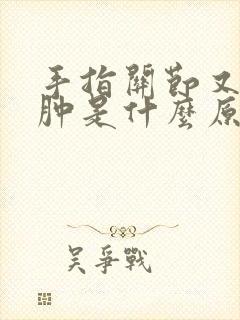 手指關節又
肿是什麼原
吴爭戰